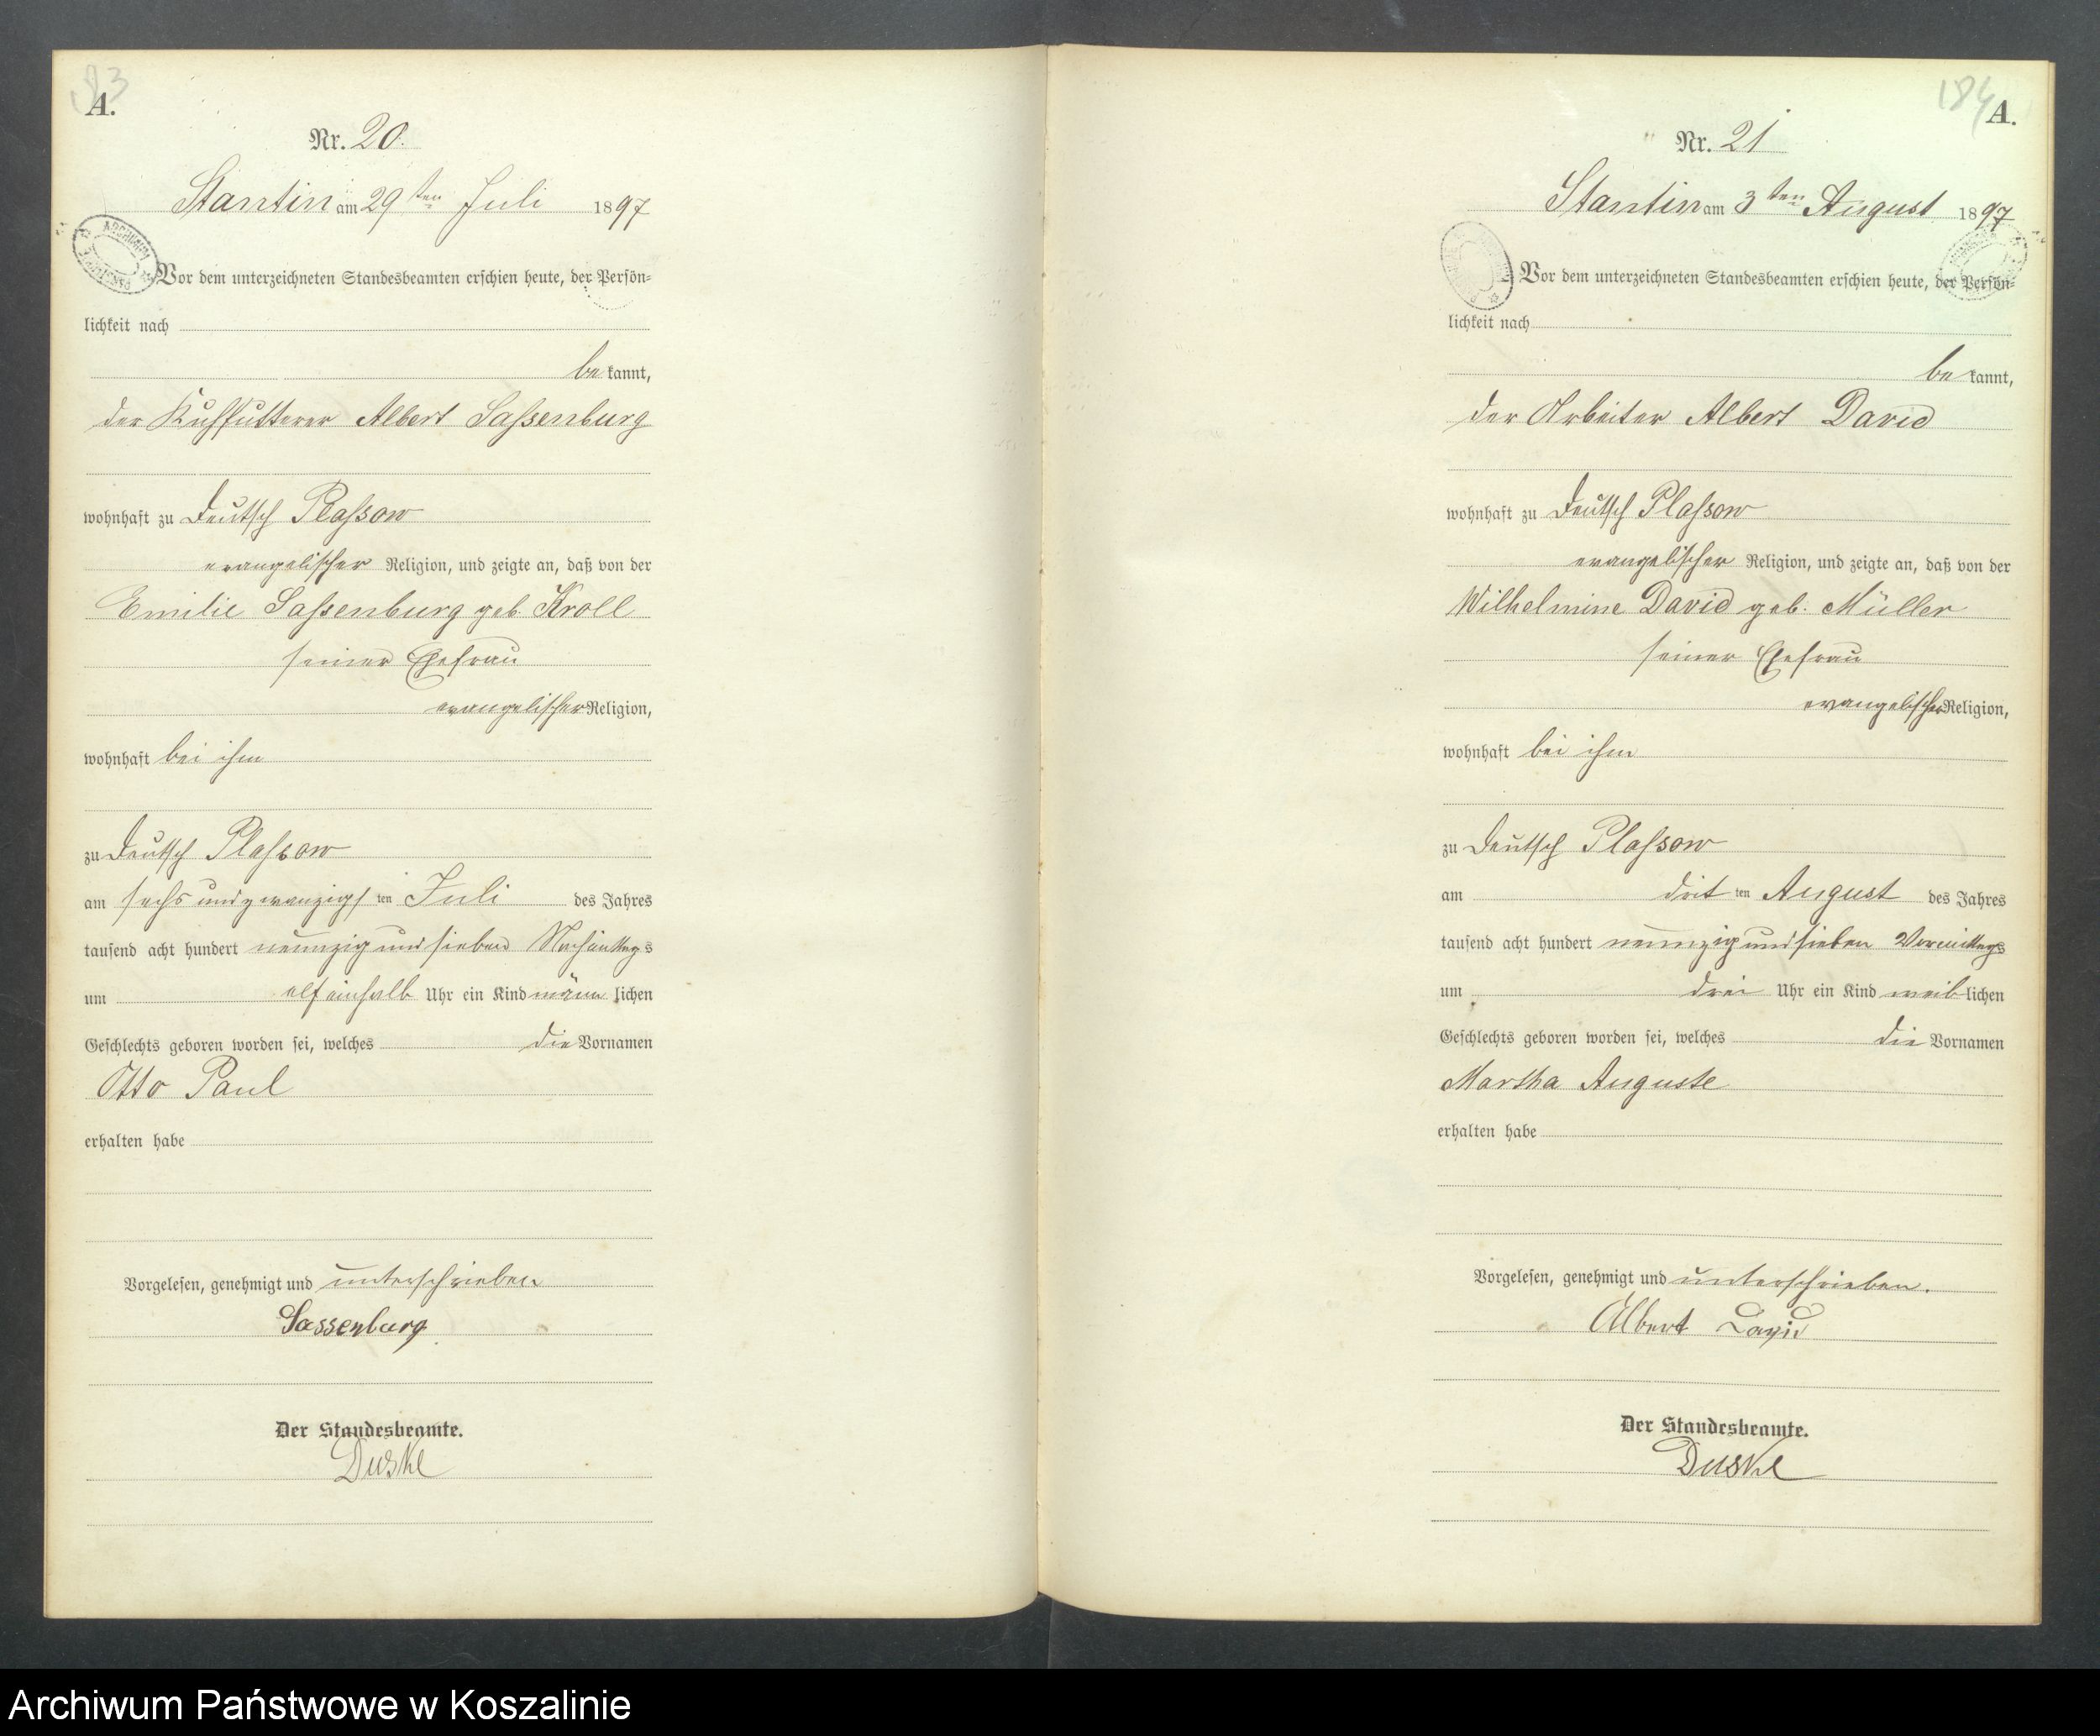 183
A.
Nr. 20.
Stantin am 29ten Juli 1897
Vor dem unterzeichneten Standesbeamten erschien heute, der Persön=
lichkeit nach
be kannt,
der Kuhfutterer Albert Saßenburg
wohnhaft zu Deutsch Plaßow
evangelischer Religion, und zeigte an, daß von der
Emilie Saßenburg geb. Kroll
seiner Ehefrau
evangelischer Religion,
wohnhaft bei ihm
zu Deutsch Plaßow
am sechs und zwanzigs ten Juli des Jahres
tausend acht hundert neunzig und sieben Nachmittags
um elf einhalb Uhr ein Kind männ lichen
Geschlechts geboren worden sei, welches die Vornamen
Otto Paul
erhalten habe
Vorgelesen, genehmigt und unterschrieben
Sassenburg
Der Standesbeamte.
Duske
184
A.
Nr. 21
Stantin am 3ten August 1897
Vor dem unterzeichneten Standesbeamten erschien heute, der Persön=
lichkeit nach
be kannt,
der Arbeiter Albert David
wohnhaft zu Deutsch Plaßow
evangelischer Religion, und zeigte an, daß von der
Wilhelmine David geb. Müller
seiner Ehefrau
evangelischer Religion,
wohnhaft bei ihm
zu Deutsch Plaßow
am drit ten August des Jahres
tausend acht hundert neunzig und sieben Vormittags
um drei Uhr ein Kind weib lichen
Geschlechts geboren worden sei, welches die Vornamen
Martha Auguste
erhalten habe
Vorgelesen, genehmigt und unterschrieben.
Albert David
Der Standesbeamte.
Duske
Archiwum Państwowe w Koszalinie